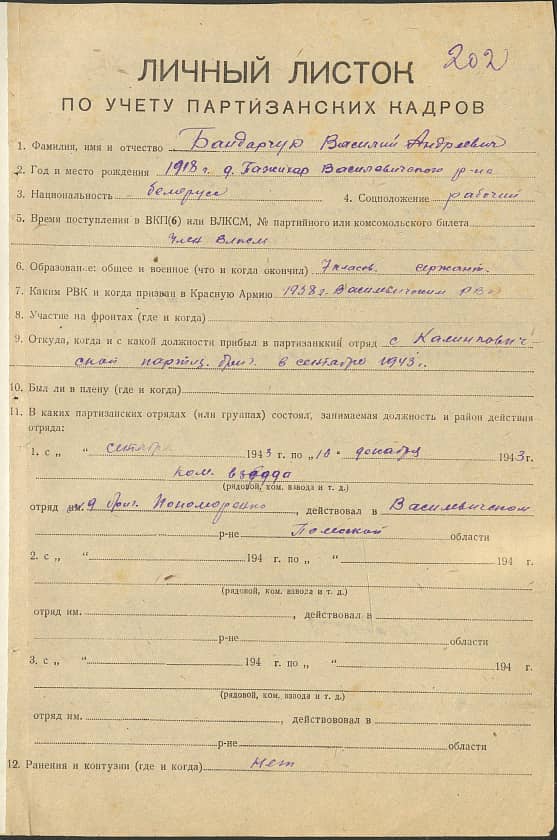 202
ЛИЧНЫЙ ЛИСТОК
ПО УЧЕТУ ПАРТИЗАНСКИХ КАДРОВ
1. Фамилия, имя и отчество Бандарчук Василий Андреевич
2. Год и место рождения 1918 г. д. Василевичского р-на
3. Национальность белорус 4. Соцположение рабочий
5. Время поступления в ВКП(б) или ВЛКСМ, № партийного или комсомольского билета
член Влксм
6. Образование: общее и военное (что и когда окончил) 7 класов. сержант.
7. Каким РВК и когда призван в Красную Армию 1938 г. Василевичским РВК
8. Участие на фронтах (где и когда)
9. Откуда, когда и с какой должности прибыл в партизанский отряд с Калинкович-
ской партиз. бриг. в сентябре 1943 г.
10. Был ли в плену (где и когда)
11. В каких партизанских отрядах (или группах) состоял, занимаемая должность и район действия
отряда:
1. с „ “ сентября 1943 г. по „18“ декабря 1943 г.
ком. взвода
(рядовой, ком. взвода и т. д.)
отряд им. 9 бриг. Пономаренко, действовал в Василевичском
р-не Полеской области
2. с „ “ 194 г. по „ “ 194 г.
(рядовой, ком. взвода и т. д.)
отряд им. , действовал в
р-не области
3. с „ “ 194 г. по „ “ 194 г.
(рядовой, ком. взвода и т. д.)
отряд им. , действововал в
р-не области
12. Ранения и контузии (где и когда) нет